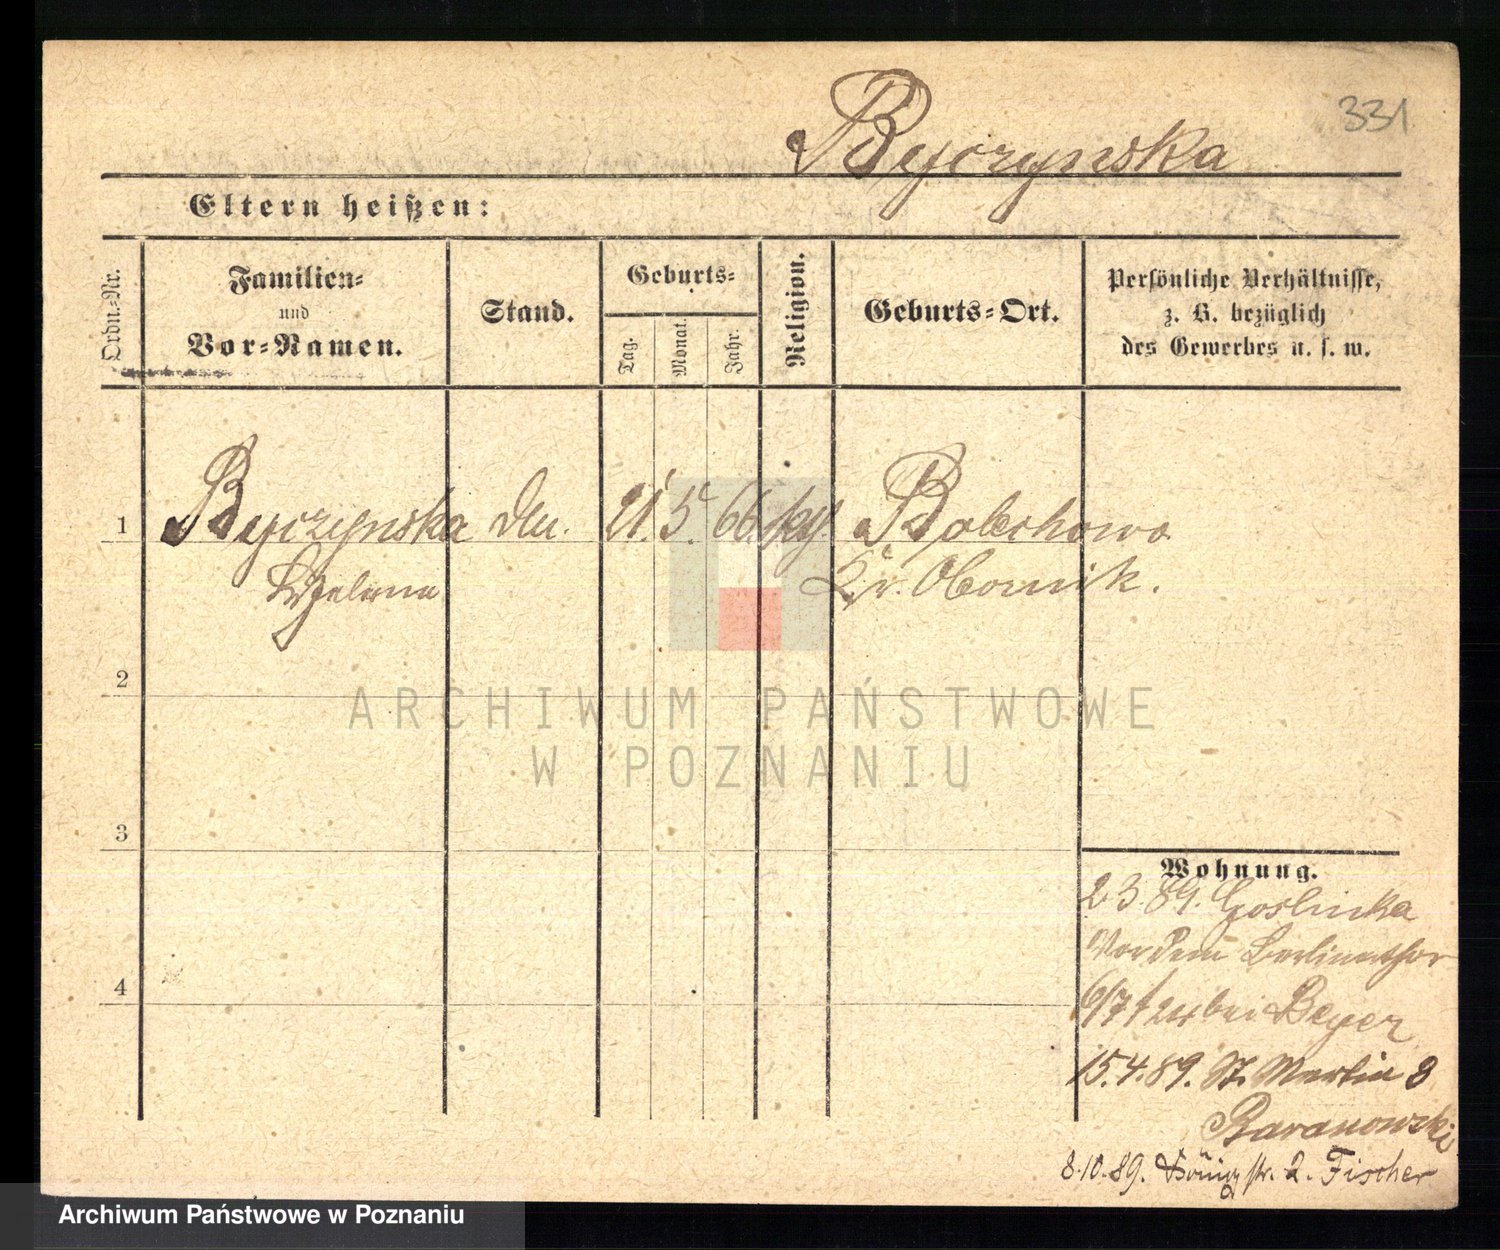 331
Byczynska
Eltern heißen:
Ordn.-Nr.
Familien-
und
Vor-Namen.
Stand.
Geburts-
Tag.
Monat.
Jahr.
Religion.
Geburts-Ort.
Persönliche Verhältnisse,
z. B. bezüglich
des Gewerbes u. s. w.
1 Byczynska 21. 5. 66. Bolechowo
Kr. Obornik.
2
3
4
ARCHIWUM PAŃSTWOWE
W POZNANIU
Wohnung.
2.3.89. Goslinka
Vor dem Berlinerthor
6/7 bei Beyer
15.4.89. St. Martin 8
Baranowski
8.10.89. Königstr. 2. Fischer
Archiwum Państwowe w Poznaniu